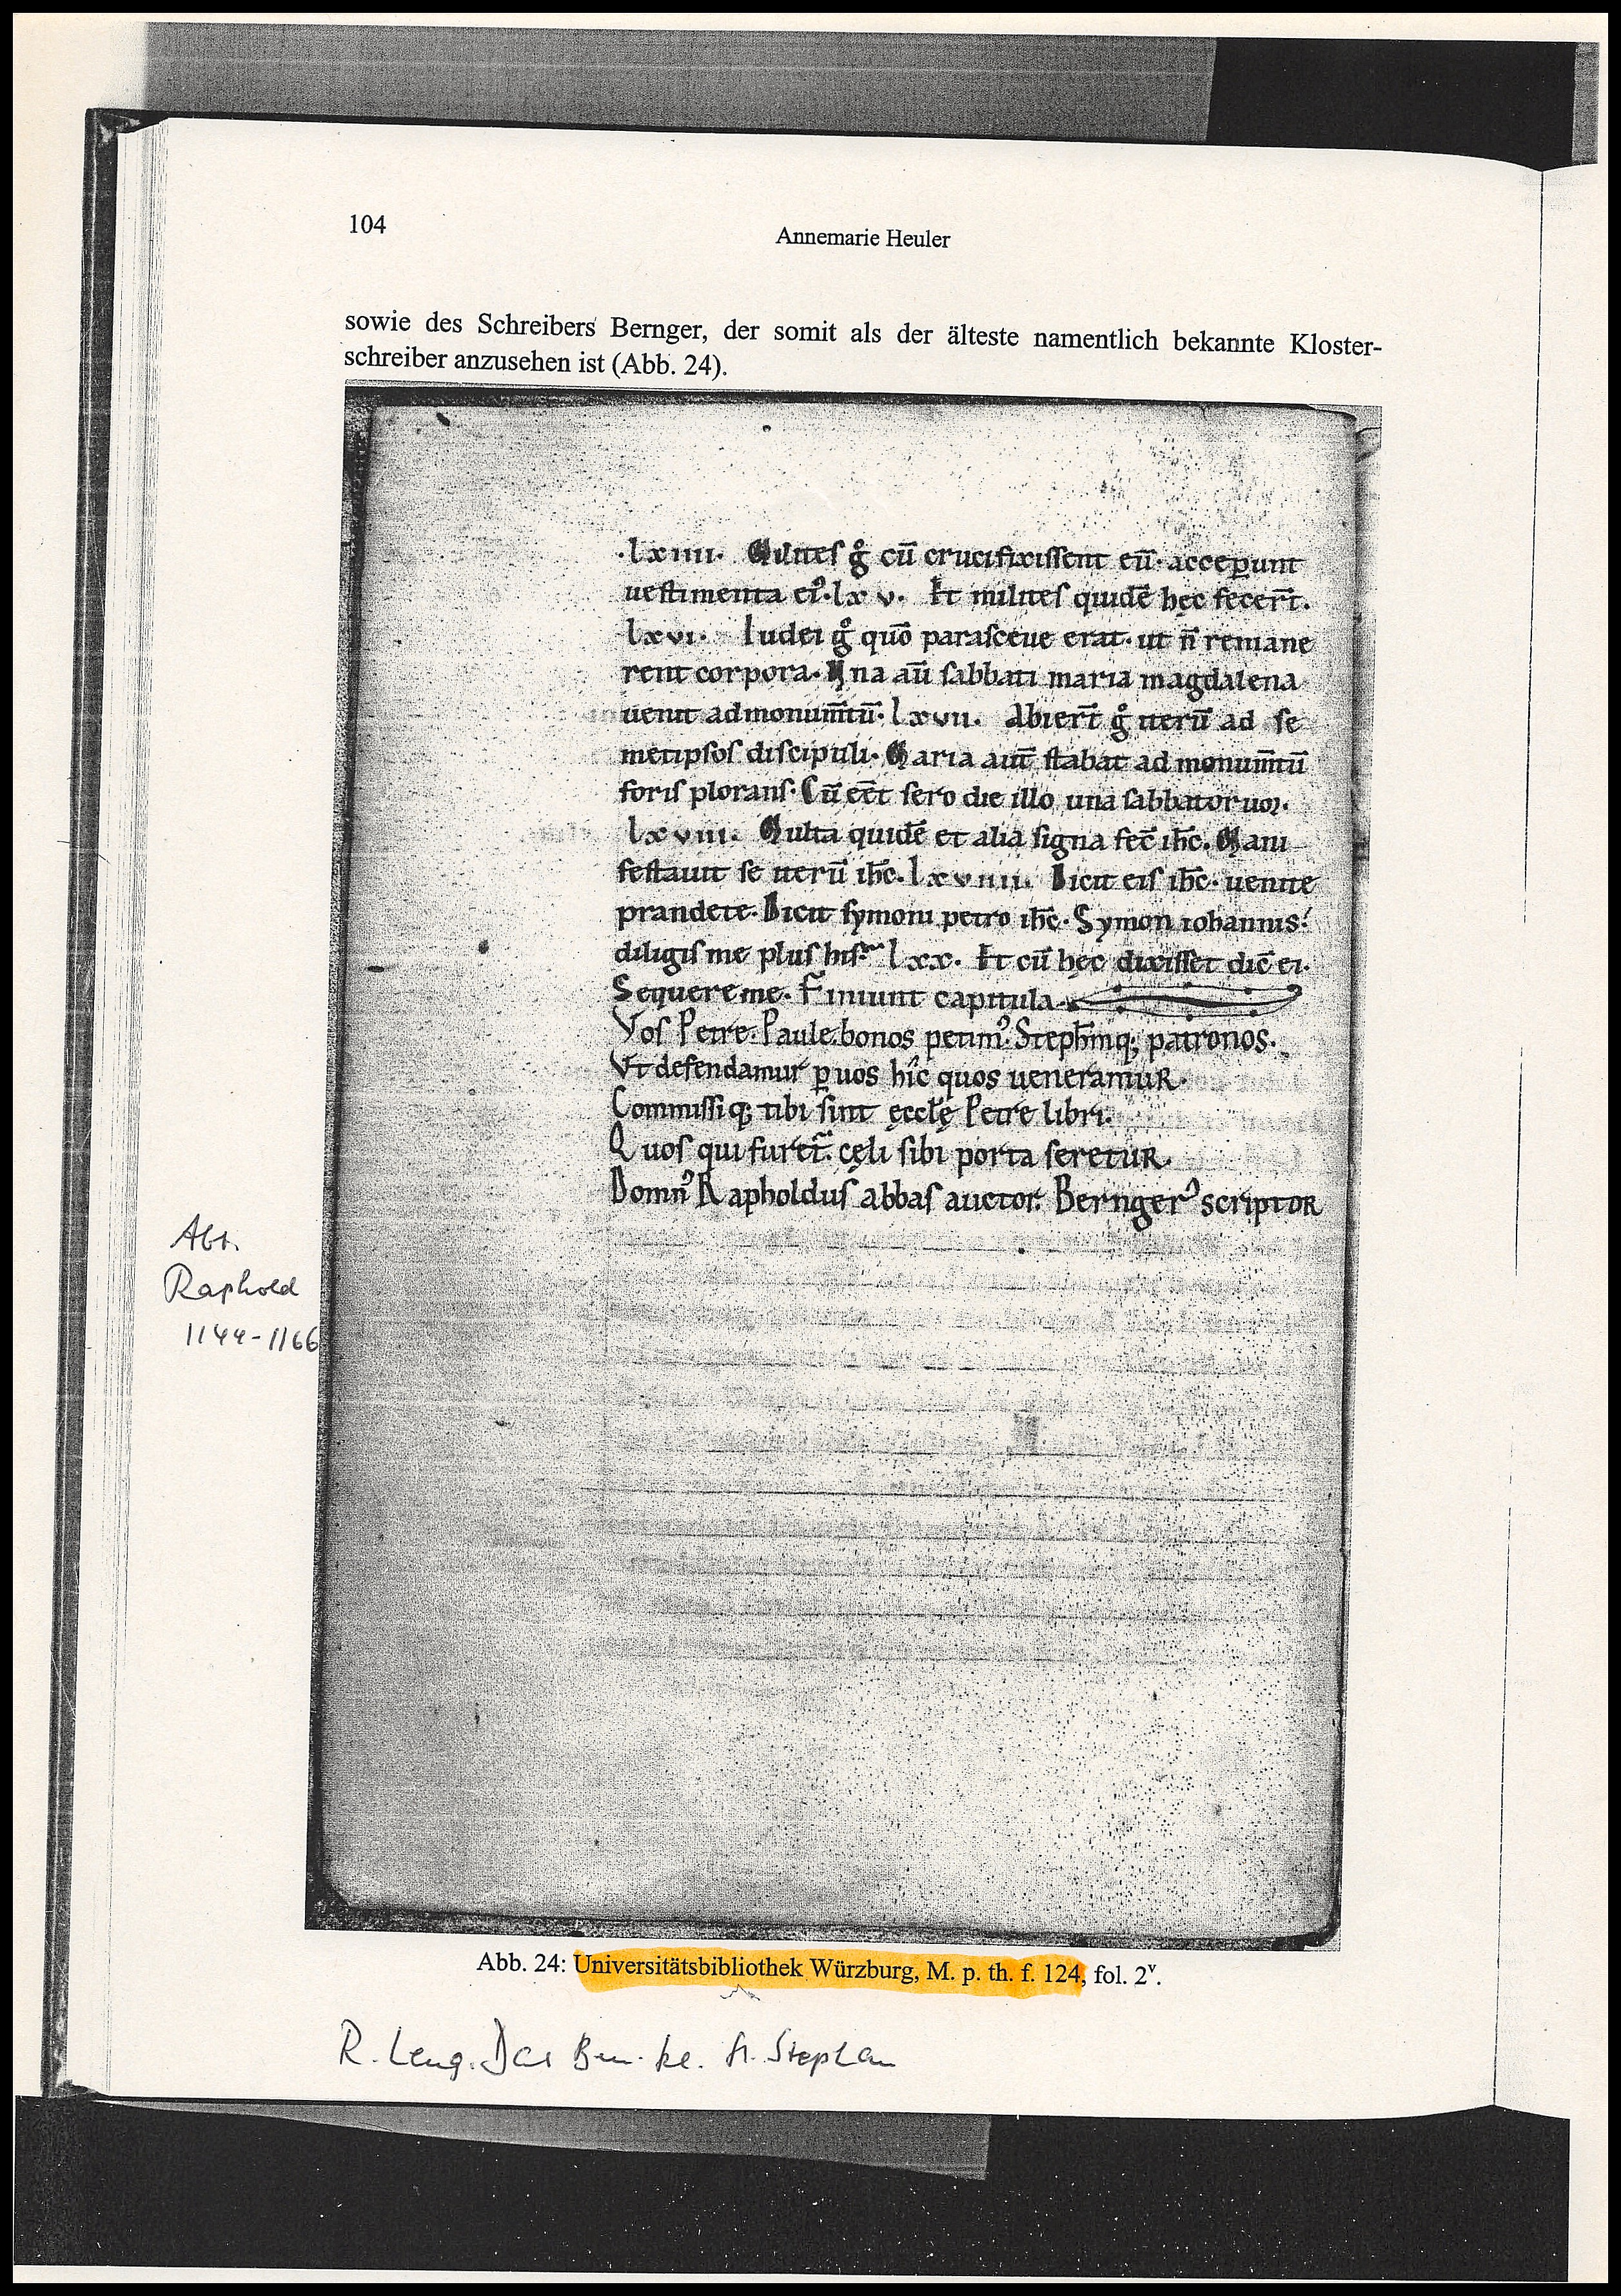 104
Annemarie Heuler
sowie des Schreibers Bernger, der somit als der älteste namentlich bekannte Kloster-
schreiber anzusehen ist (Abb. 24).
·lxiiii· Milites g̊ cū crucifixissent eū· acceꝑunt
uestimenta eiꝰ·lxv· Et milites quidē hec fecer̄t.
lxvi· Iudei g̊ quō parasceue erat· ut n̄ remane
rent corpora· Una aū sabbati maria magdalena
uenit ad monum̄tū· lxvii· Abier̄t g̊ iterū ad se
metipsos discipuli· Maria aut̄ stabat ad monum̄tū
foris plorans· Cū eēt sero die illo una sabbatoruꝫ.
lxviii· Multa quidē et alia signa fec̄ ih̄c. Mani
festauit se iterū ih̄c· lxviiii· Dicit eis ih̄c· uenite
prandete· Dicit symoni petro ih̄c· Symon iohannis!
diligis me plus his· lxx· Et cū hec dixisset dic̄ ei·
Sequere me· Finiunt capitula·
Vos Petre· Paule bonos petimꝰ· Steph̄mq; patronos·
Vt defendamur ꝑ uos hīc quos ueneramur·
Commissiq; tibi sint ęccl̄ę Petre libri.
Quos qui furet̄· cęli sibi porta seretur·
Domnꝰ Rapholdus abbas auctor· Berngerꝰ scriptor
Abt.
Raphold
1144-1166
Abb. 24: Universitätsbibliothek Würzburg, M. p. th. f. 124, fol. 2ᵛ.
R. Leng. Das Ben. kl. St. Stephan